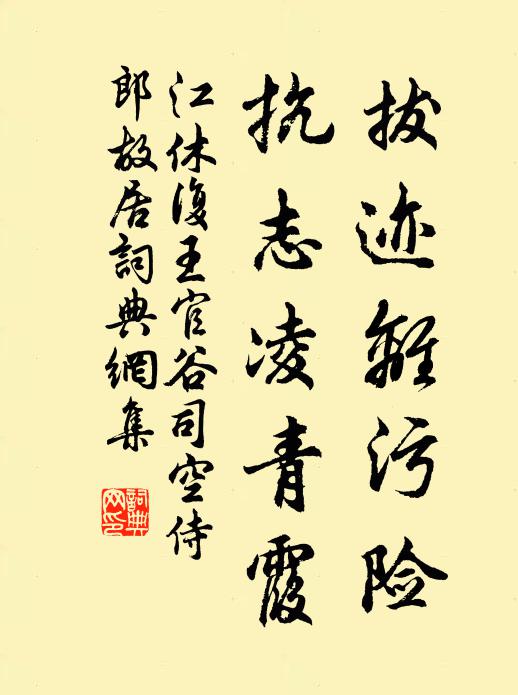 拔迹離污险
抗志凌青霞
江休復王官谷司空侍
郎故居詞典網集
詞典网印